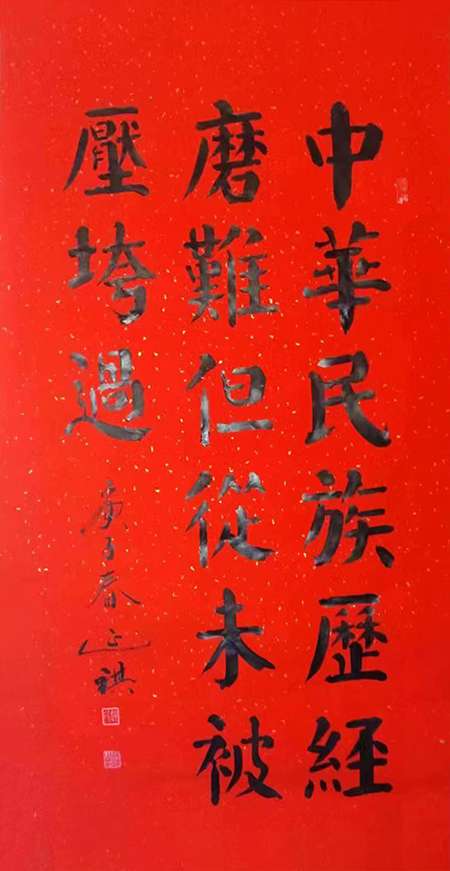 中華民族歷經
磨難但從未被
壓垮過
庚子春 正祺